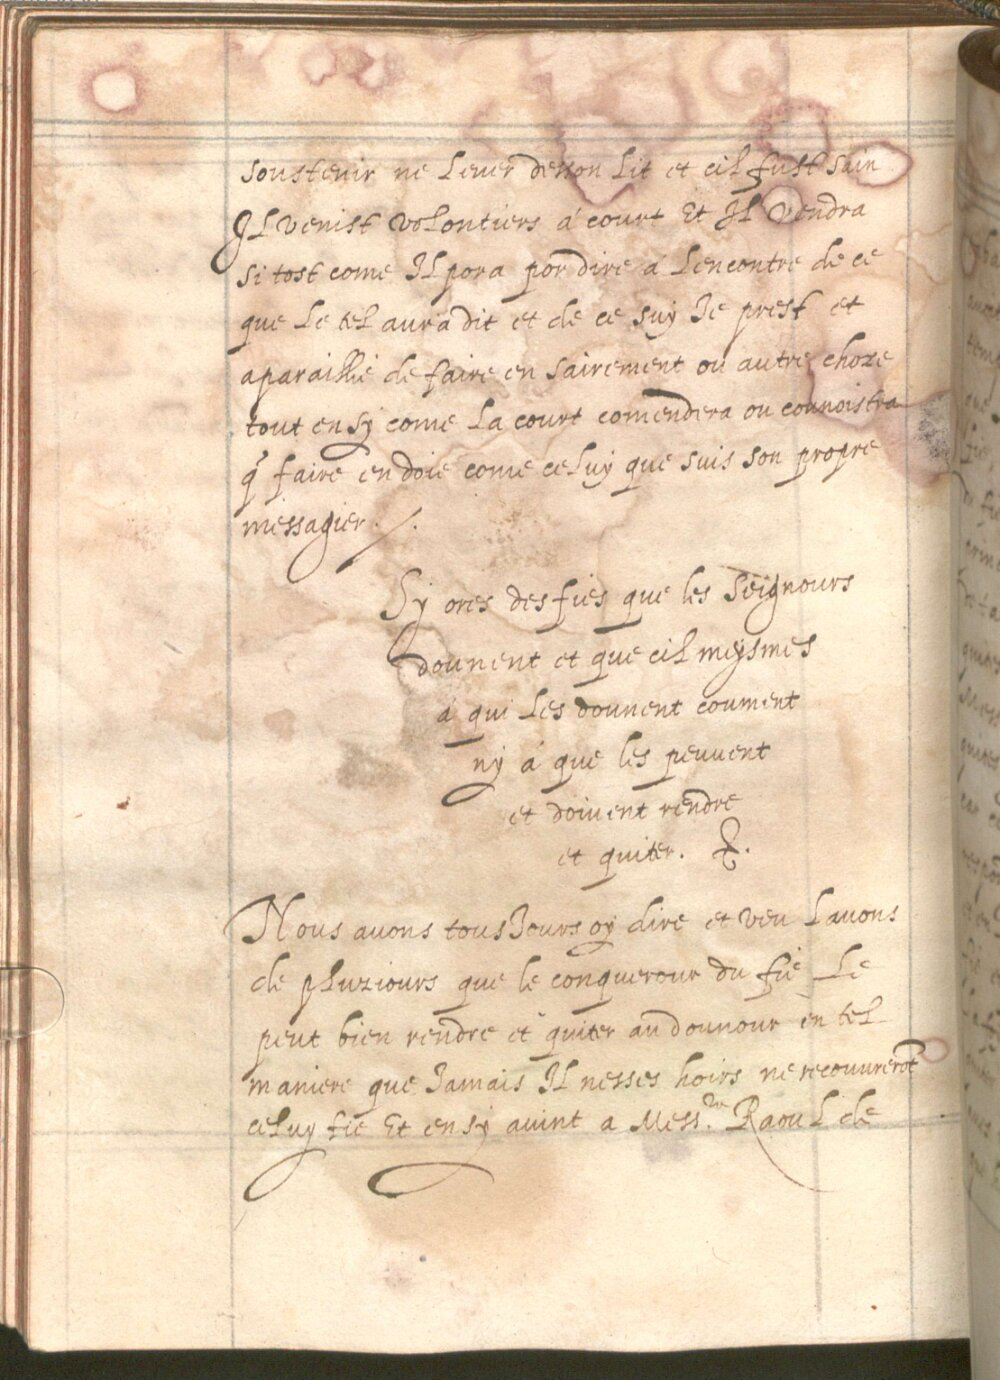 soustenir ne lever desson lit et cil fust sain
Il venist volontiers á court Et Il vendra
si tost come Il pora por dire á lencontre de ce
que le tel aura dit et de ce suy Je prest et
aparaillié de faire en sairement ou autre choze
tout ensy come la court comendera ou counoistra
q̃ faire en doie come celuy que suis son propre
messagier ./.
Sy ores des fiés que les Seignours
dounent et que cil meysmes
á qui les dounent coument
ny á que les peuvent
et doivent rendre
et quiter.
Nous avons tous Jours oy dire et veu lavons
de pluziours que le conquerour du fié le
peut bien rendre et quiter au dounour en tel
maniere que Jamais Il nesses hoirs ne recouvrerõt
celuy fié Et ensy avint a Mess.re Raoul de